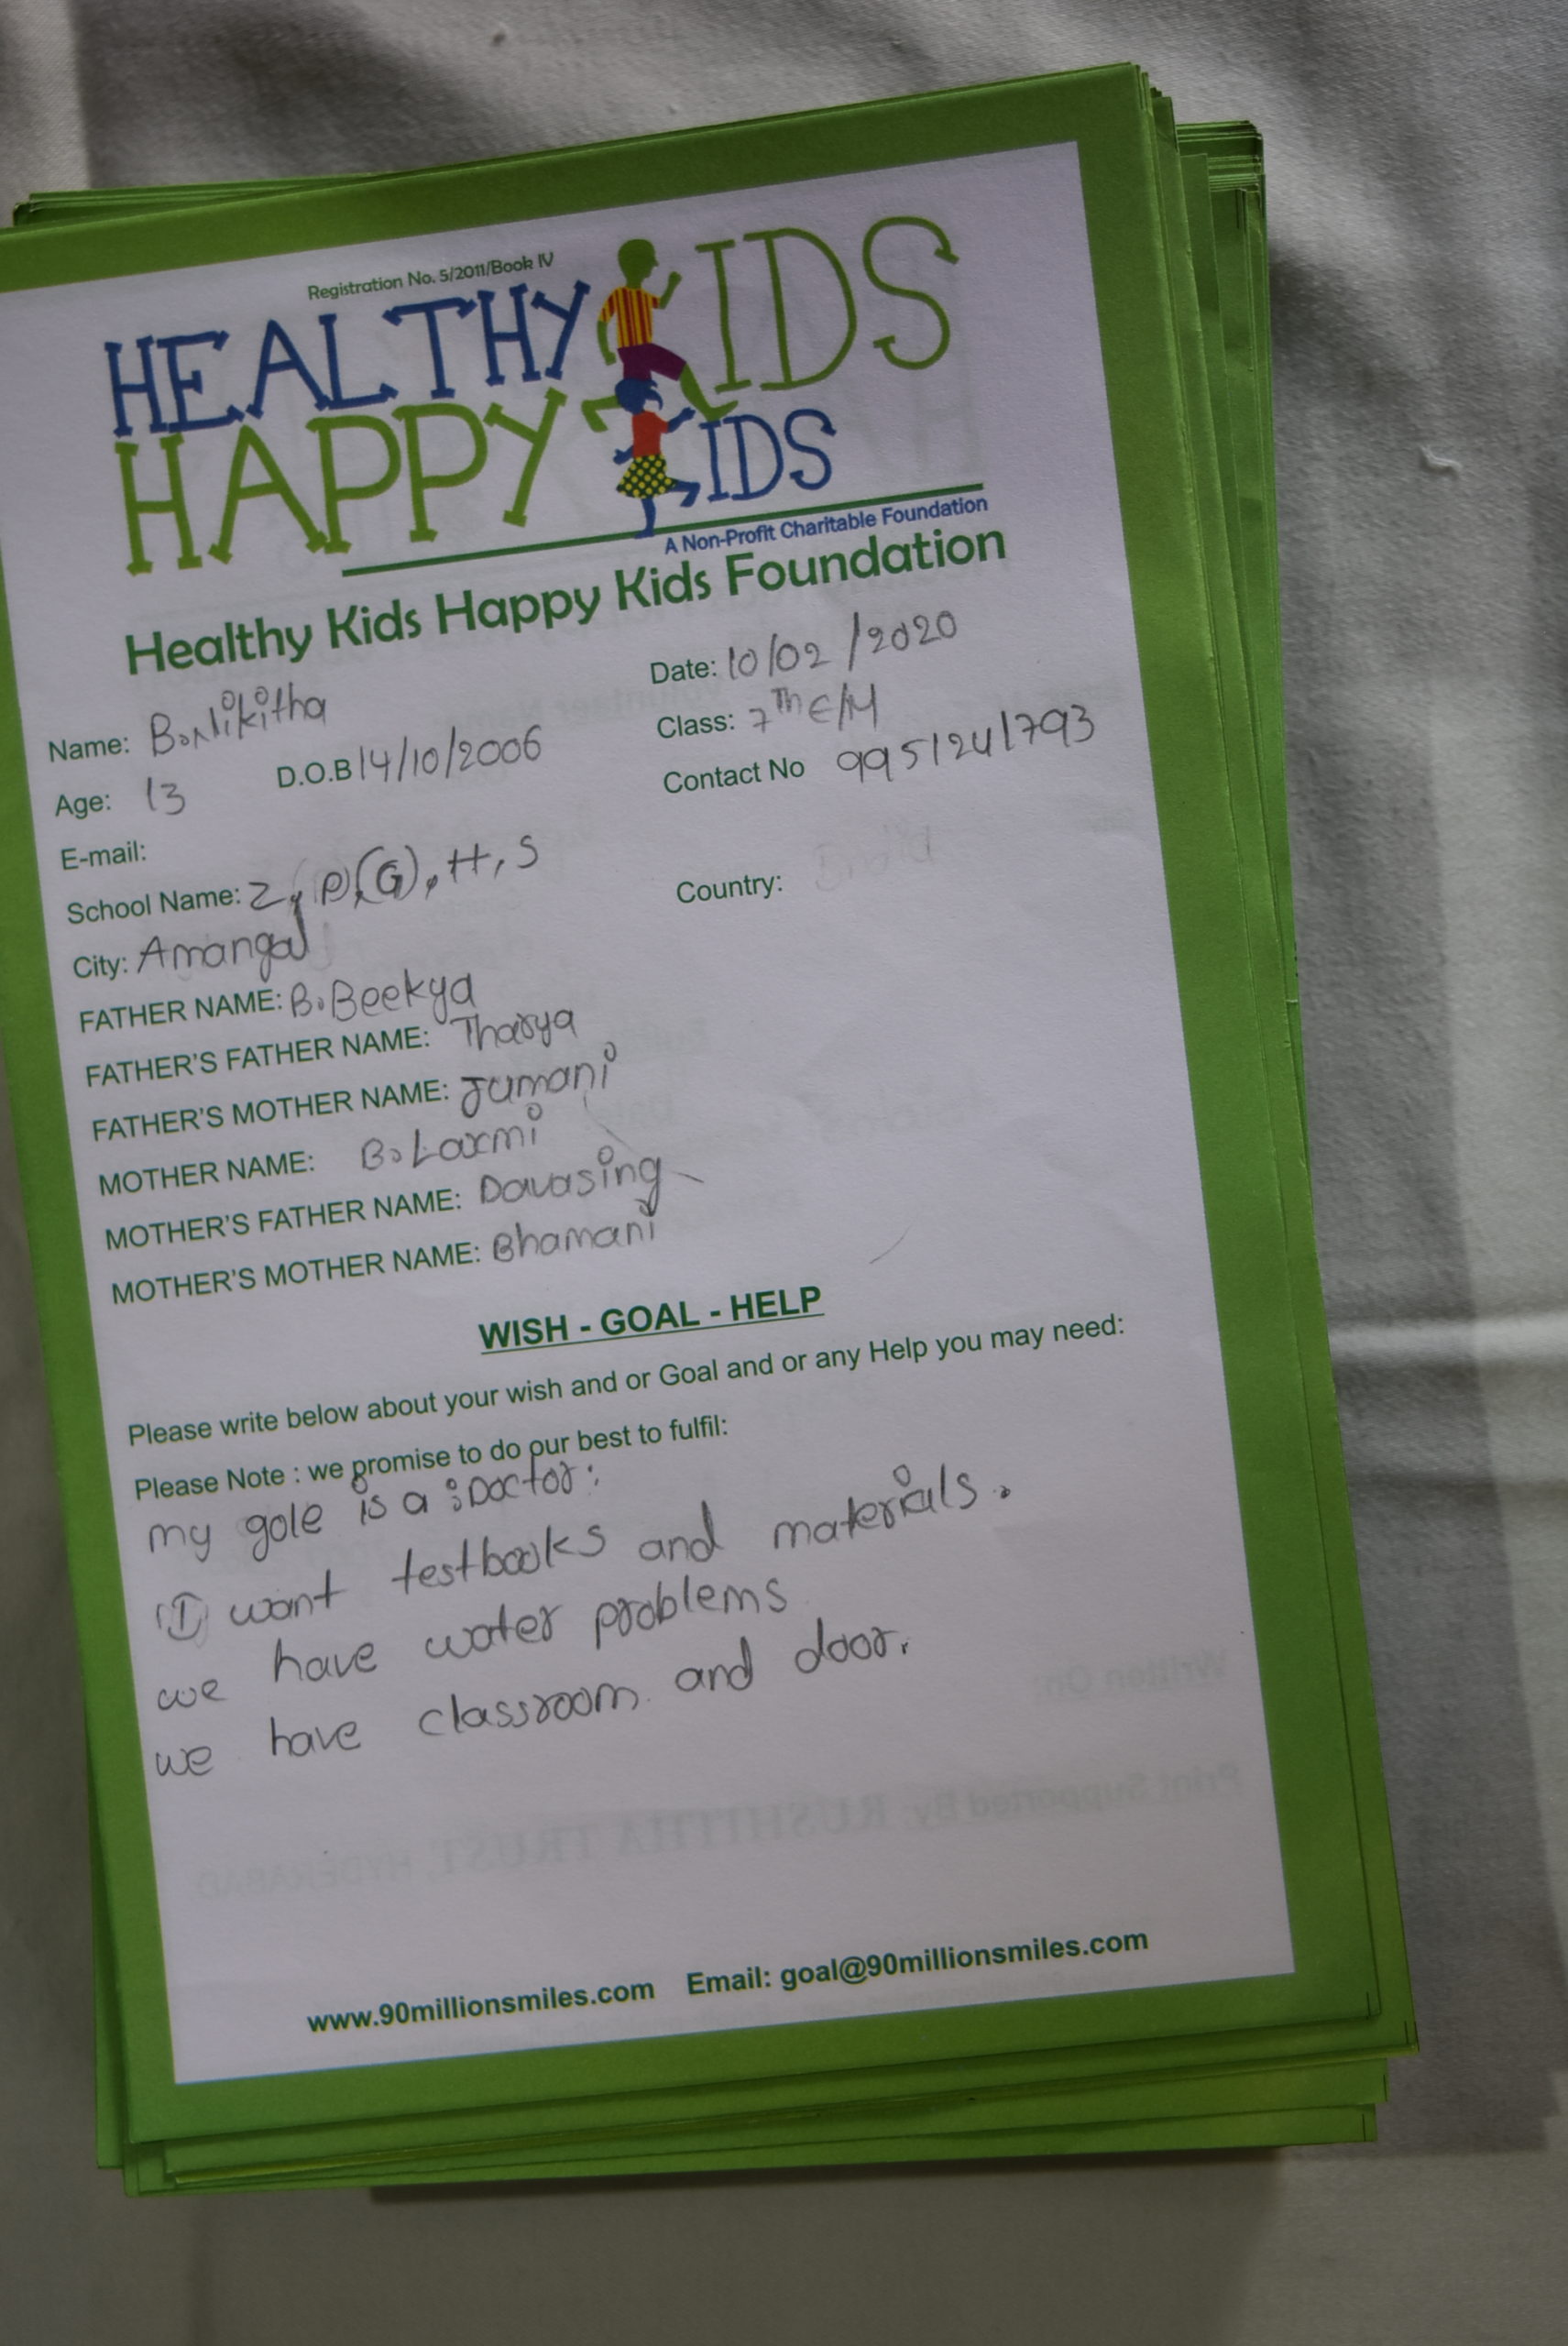 Registration No. 5/2011/Book IV
HEALTHY KIDS
HAPPY KIDS
A Non-Profit Charitable Foundation
Healthy Kids Happy Kids Foundation
Date: 10/02/2020
Name: B.Nikitha
Class: 7Th E/M
Age: 13 D.O.B 14/10/2006
Contact No 9951241793
E-mail:
School Name: Z, P,(G), H, S
Country: India
City: Amangal
FATHER NAME: B.Beekya
FATHER'S FATHER NAME: Tharya
FATHER'S MOTHER NAME: Jumani
MOTHER NAME: B. Laxmi
MOTHER'S FATHER NAME: Davasing
MOTHER'S MOTHER NAME: Bhamani
WISH - GOAL - HELP
Please write below about your wish and or Goal and or any Help you may need:
Please Note : we promise to do our best to fulfil:
my gole is a : Doctor :
I want testbooks and materials.
we have water problems
we have classroom and door.
Written On:
Print Supported By RUSHITHA TRUST, HYDERABAD
www.90millionsmiles.com Email: goal@90millionsmiles.com